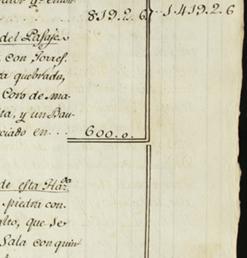 819.2.6 7..1419.2.6
del Pasaje
con Torref.
a quebrada,
Coro de ma-
ta, y un Bau-
ciado en... 600.0.
de esta Haz.da
piedra con
alto, que se
Sala con quin